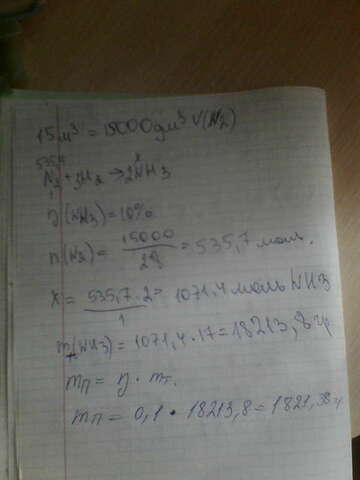 15 м³ = 15000 дм³ V(N₂)
535,7 x
N₂ + 3H₂ → 2NH₃
1
η(NH₃) = 10%
n(N₂) = 15000 / 28 = 535,7 моль.
x = 535,7 · 2 / 1 = 1071,4 моль NH₃
mт(NH₃) = 1071,4 · 17 = 18213,8 гр
mп = η · mт.
mп = 0,1 · 18213,8 = 1821,38 г